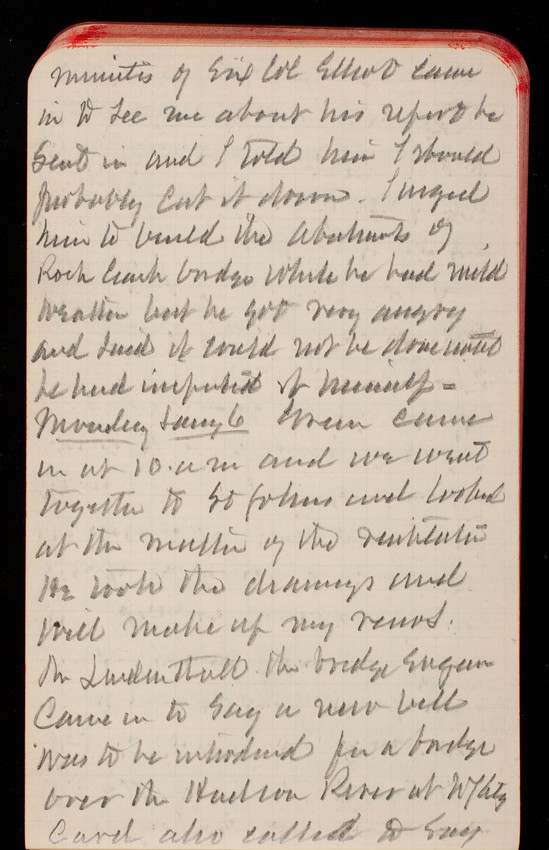 minutes of Six Col Elliot came
in to see me about his report he
sent in and I told him I should
probably cut it down. I urged
him to build the abutments of
Rock Creek bridge while he had mild
weather but he got very angry
and said it could not be done until
he had inspected it himself =
Monday Jany 6 Green came
in at 10 a m and we went
together to St Johns and looked
at the matter of the ventilation
He took the drawings and
will make up my
Mr Lindenthall the bridge Engineer
Came in to say a new bill
was to be introduced for a bridge
over the Hudson River at N Y City
Card also called to say